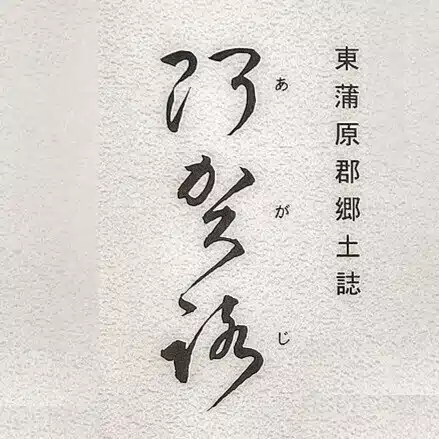 東蒲原郡郷土誌
あがじ
阿賀路